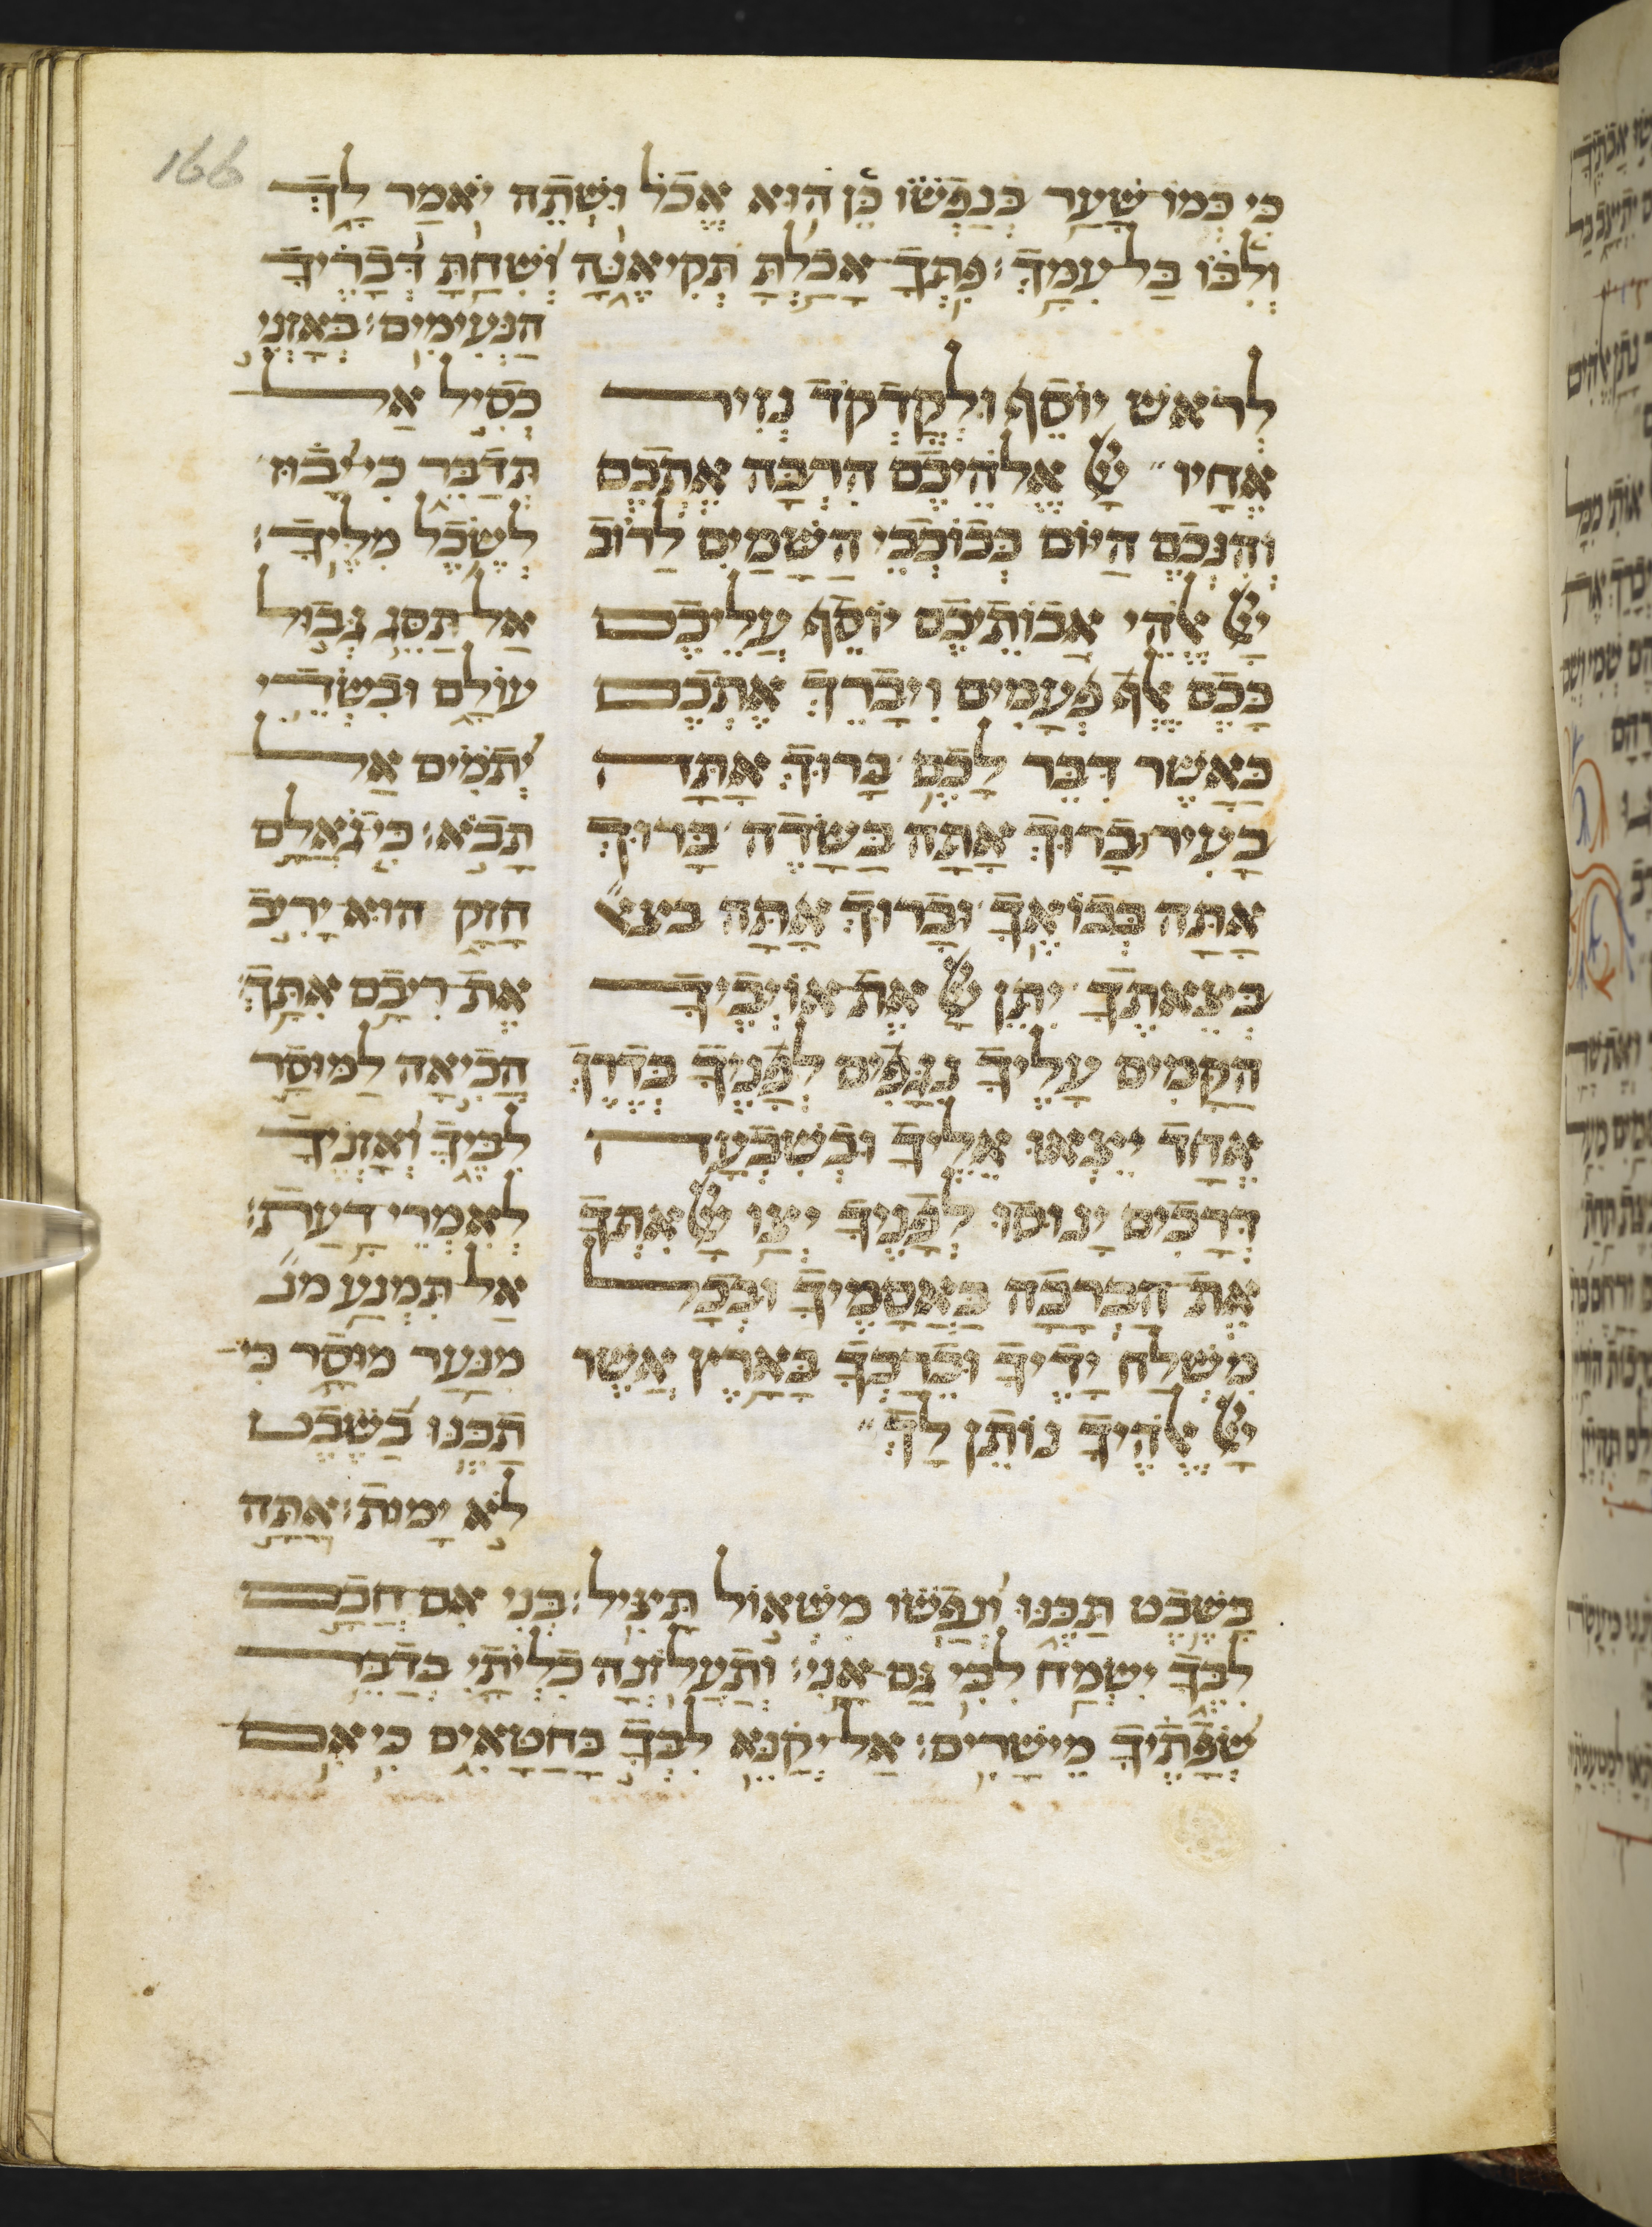 כי כמו שער בנפשו כן הוא אכל ושתה יאמר לך
ולבו בל עמך: פתך אכלת תקיאנה ושחת דבריך
הנעימים: באזני
לראש יוסף ולקדקד נזיר
אחיו יי אלהיכם הרבה אתכם
והנכם היום ככוכבי השמים לרוב
יי אלהי אבותיכם יוסף עליכם
ככם אלף פעמים ויברך אתכם
כאשר דבר לכם ברוך אתה
בעיר ברוך אתה בשדה ברוך
אתה בבואך וברוך אתה בצא
בצאתך יתן יי את אויביך
הקמים עליך נגפים לפניך בדרך
אחד יצאו אליך ובשבעה
דרכים ינוסו לפניך יצו יי אתך
את הברכה באסמיך ובכל
משלח ידיך וברכך בארץ אשר
יי אלהיך נותן לך
כסיל אל
תדבר כי יבוז
לשכל מליך:
אל תסג גבול
עולם ובשדי
יתמים אל
תבא: כי גאלם
חזק הוא יריב
את ריבם אתך
הביאה למוסר
לבך ואזניך
לאמרי דעת:
אל תמנע מנ
מנער מוסר כי
תכנו בשבט
לא ימות: אתה
בשבט תכנו ונפשו משאול תציל: בני אם חכם
לבך ישמח לבי גם אני: ותעלזנה כליותי בדבר
שפתיך מישרים: אל יקנא לבך בחטאים כי אם
166